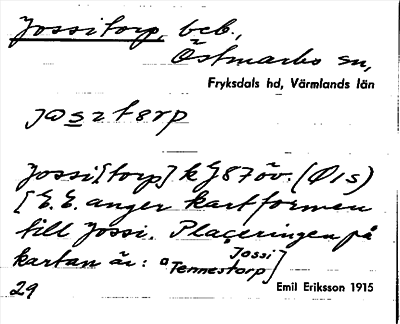 Jossitorp, beb.,
Östmarks sn,
Fryksdals hd, Värmlands län
Jossi[torp] k G 87 öv. (Ö1s)
[E. E. anger kartformen
till Jossi. Placeringen på
kartan är: Jossi
Tennestorp]
29 Emil Eriksson 1915